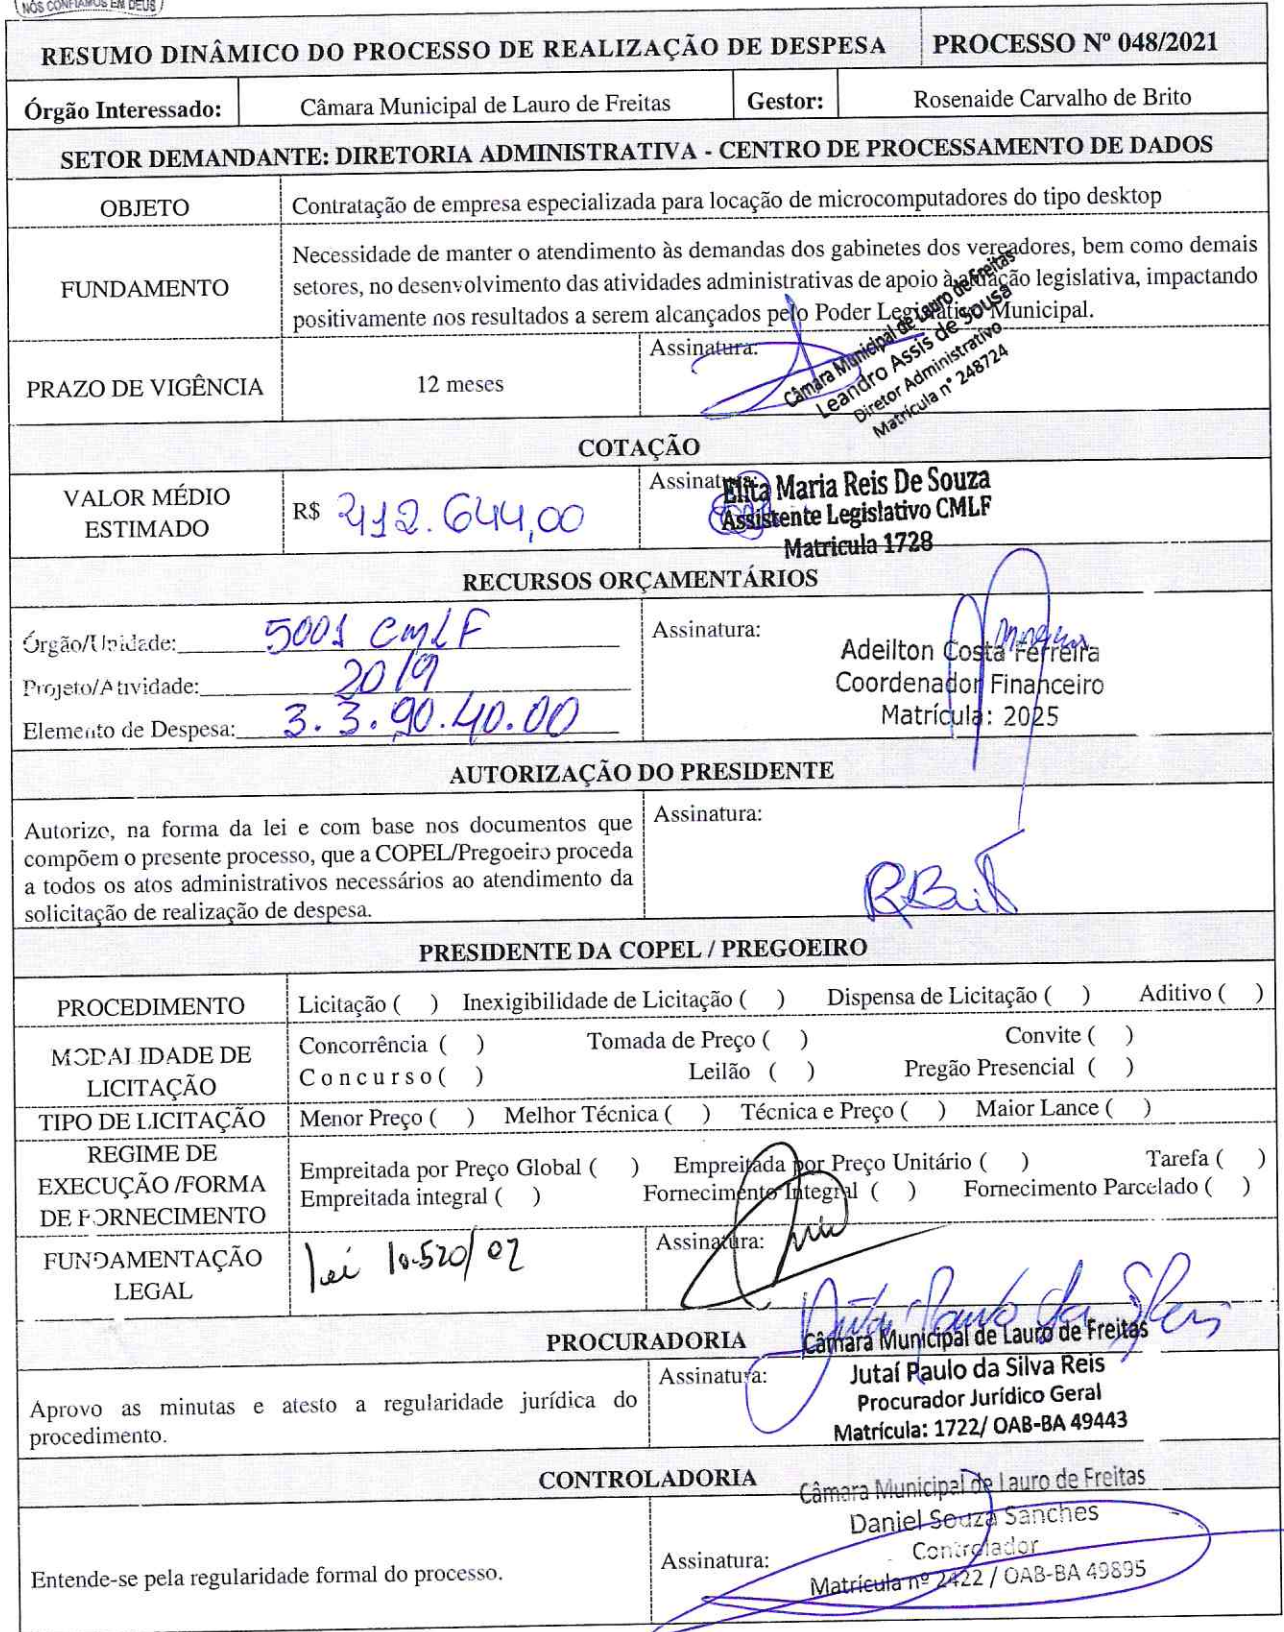 NÓS CONFIAMOS EM DEUS
RESUMO DINÂMICO DO PROCESSO DE REALIZAÇÃO DE DESPESA PROCESSO Nº 048/2021
Órgão Interessado: Câmara Municipal de Lauro de Freitas Gestor: Rosenaide Carvalho de Brito
SETOR DEMANDANTE: DIRETORIA ADMINISTRATIVA - CENTRO DE PROCESSAMENTO DE DADOS
OBJETO Contratação de empresa especializada para locação de microcomputadores do tipo desktop
FUNDAMENTO
Necessidade de manter o atendimento às demandas dos gabinetes dos vereadores, bem como demais
setores, no desenvolvimento das atividades administrativas de apoio à atuação legislativa, impactando
positivamente nos resultados a serem alcançados pelo Poder Legislativo Municipal.
PRAZO DE VIGÊNCIA 12 meses
Assinatura:
Câmara Municipal de Lauro de Freitas
Leandro Assis de Sousa
Diretor Administrativo
Matrícula n° 248724
COTAÇÃO
VALOR MÉDIO
ESTIMADO
R$ 412.644,00
Assinatura:
Elita Maria Reis De Souza
Assistente Legislativo CMLF
Matricula 1728
RECURSOS ORÇAMENTÁRIOS
Órgão/Unidade: 5001 CMLF
Projeto/Atividade: 2019
Elemento de Despesa: 3.3.90.40.00
Assinatura:
Adeilton Costa Ferreira
Coordenador Financeiro
Matrícula: 2025
AUTORIZAÇÃO DO PRESIDENTE
Autorizo, na forma da lei e com base nos documentos que
compõem o presente processo, que a COPEL/Pregoeiro proceda
a todos os atos administrativos necessários ao atendimento da
solicitação de realização de despesa.
Assinatura:
RBrit
PRESIDENTE DA COPEL / PREGOEIRO
PROCEDIMENTO Licitação ( ) Inexigibilidade de Licitação ( ) Dispensa de Licitação ( ) Aditivo ( )
MODALIDADE DE
LICITAÇÃO
Concorrência ( ) Tomada de Preço ( ) Convite ( )
Concurso ( ) Leilão ( ) Pregão Presencial ( )
TIPO DE LICITAÇÃO Menor Preço ( ) Melhor Técnica ( ) Técnica e Preço ( ) Maior Lance ( )
REGIME DE
EXECUÇÃO /FORMA
DE FORNECIMENTO
Empreitada por Preço Global ( ) Empreitada por Preço Unitário ( ) Tarefa ( )
Empreitada integral ( ) Fornecimento Integral ( ) Fornecimento Parcelado ( )
FUNDAMENTAÇÃO
LEGAL
Lei 10.520/02
Assinatura:
PROCURADORIA
Aprovo as minutas e atesto a regularidade jurídica do
procedimento.
Assinatura:
Jutaí Paulo da S Reis
Câmara Municipal de Lauro de Freitas
Jutaí Paulo da Silva Reis
Procurador Jurídico Geral
Matrícula: 1722/ OAB-BA 49443
CONTROLADORIA
Entende-se pela regularidade formal do processo.
Assinatura:
Câmara Municipal de Lauro de Freitas
Daniel Souza Sanches
Controlador
Matrícula nº 2422 / OAB-BA 49895